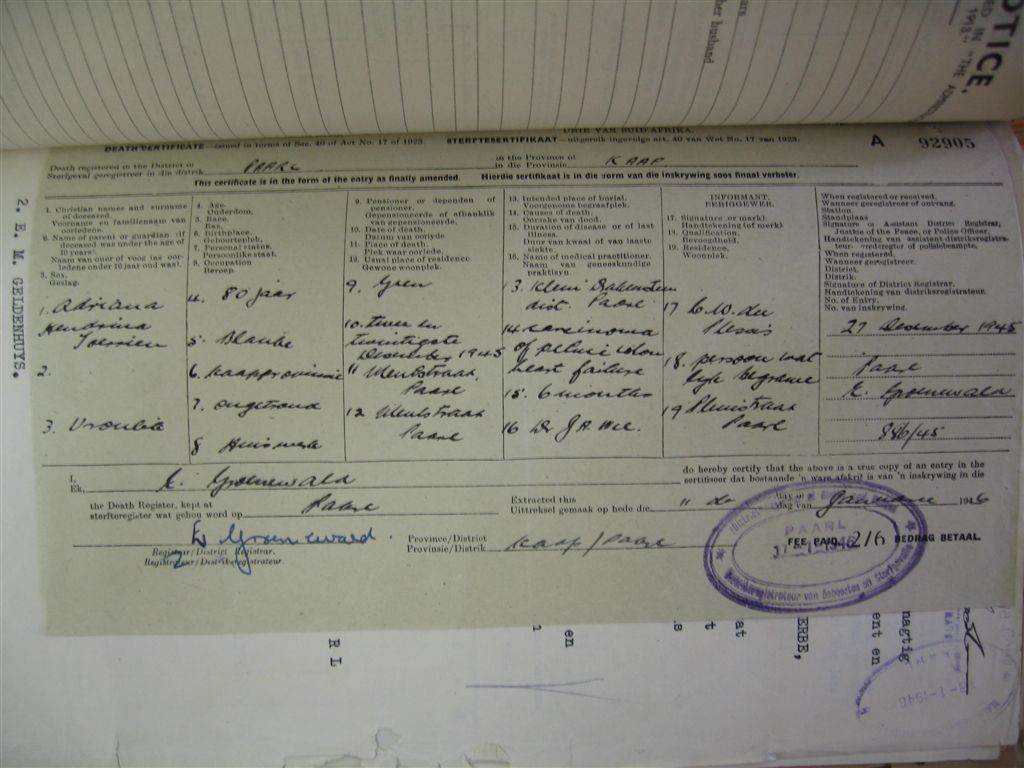 OTICE,
ED IN
1913." "THE ADMINIS
ars
her husband
UNIE VAN SUID-AFRIKA.
DEATH CERTIFICATE—issued in terms of Sec. 40 of Act No. 17 of 1923. STERFTESERTIFIKAAT—uitgereik ingevolge art. 40 van Wet No. 17 van 1923. A 92905
Death registered in the District of
Sterfgeval geregistreer in die distrik PAARL in the Province of
in die Provinsie KAAP
This certificate is in the form of the entry as finally amended. Hierdie sertifikaat is in die vorm van die inskrywing soos finaal verbeter.
1. Christian names and surname
of deceased.
Voorname en familienaam van
oorledene.
2. Name of parent or guardian (if
deceased was under the age of
10 years).
Naam van ouer of voog (as oor-
ledene onder 10 jaar oud was).
3. Sex.
Geslag.
1. Adriana
Hendrina
2.
3. Vroulik
4. Age.
Ouderdom.
5. Race.
Ras.
6. Birthplace.
Geboorteplek.
7. Personal status.
Persoonlike staat.
8. Occupation
Beroep.
4. 80 jaar
5. Blanke
6. Kaapprovinsie
7. ongetroud
8 Huiswerk
9. Pensioner or dependent of
pensioner.
Gepensioneerde of afhanklik
van gepensioneerde.
10. Date of death.
Datum van oorlyde.
11. Place of death.
Plek waar oorlede.
12. Usual place of residence.
Gewone woonplek.
9. Geen
10. twee en
twintigste
Desember 1945
11
Paarl
12
Paarl
13. Intended place of burial.
Voorgenome begraafplek.
14. Causes of death.
Oorsake van dood.
15. Duration of disease or of last
illness.
Duur van kwaal of van laaste
siekte.
16. Name of medical practitioner.
Naam van geneeskundige
praktisyn.
13. Klein Drakenstein
dist. Paarl
14 carcinoma
of pelvic colon
heart failure
15. 6 months
16 Dr J.A.
INFORMANT.
BERIGGEWER.
17. Signature (or mark).
Handtekening (of merk)
18. Qualification.
Bevoegdheid.
19. Residence.
Woonplek.
17 du
Plessis
18. persoon wat
lyk begrawe
19 Pleinstraat
Paarl
When registered or received.
Wanneer geregistreer of ontvang.
Station.
Standplaas
Signature of Assistant District Registrar,
Justice of the Peace, or Police Officer.
Handtekening van assistent distriksregistra-
teur, vrederegter of polisiebeampte.
When registered.
Wanneer geregistreer.
District.
Distrik.
Signature of District Registrar.
Handtekening van distriksregistrateur.
No. of Entry.
No. van inskrywing.
27 Desember 1945
Paarl
E. Groenewald
886/45
I,
Ek, E. Groenewald do hereby certify that the above is a true copy of an entry in the
sertifiseer dat bostaande 'n ware afskrif is van 'n inskrywing in die
the Death Register, kept at
sterfteregister wat gehou word op Paarl Extracted this
Uittreksel gemaak op hede die 11 de day of
dag van Januarie 1946
E Groenewald.
Registrar/District Registrar.
Registrateur/Distriksregistrateur.
Province/District
Provinsie/Distrik Kaap/Paarl
FEE PAID 2/6 BEDRAG BETAAL.
PAARL
-1-1946
Distriksregistrateur van Geboortes en Sterfgevalle
2. E. M. GELDENHUYS.
R L
en
t
at
ERBE,
nagtig
ent en
-1-1946